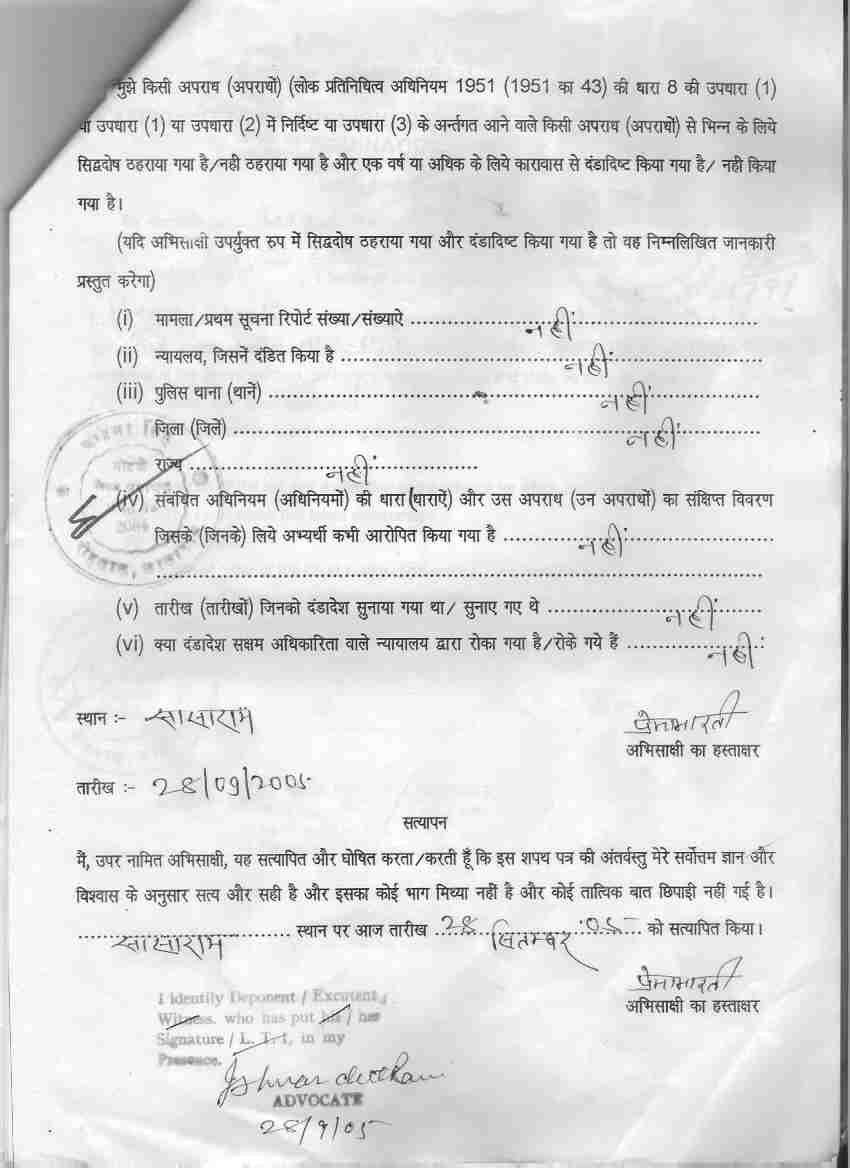 मुझे किसी अपराध (अपराधों) (लोक प्रतिनिधित्व अधिनियम 1951 (1951 का 43) की धारा 8 की उपधारा (1)
या उपधारा (1) या उपधारा (2) में निर्दिष्ट या उपधारा (3) के अर्न्तगत आने वाले किसी अपराध (अपराधों) से भिन्न के लिये
सिद्वदोष ठहराया गया है/नही ठहराया गया है और एक वर्ष या अधिक के लिये कारावास से दंडादिष्ट किया गया है/ नही किया
गया है।
(यदि अभिसाक्षी उपर्युक्त रुप में सिद्वदोष ठहराया गया और दंडादिष्ट किया गया है तो वह निम्नलिखित जानकारी
प्रस्तुत करेगा)
(i) मामला/प्रथम सूचना रिपोर्ट संख्या/संख्याऐ ........ नहीं ........
(ii) न्यायलय, जिसनें दंडित किया है ........ नहीं ........
(iii) पुलिस थाना (थानें) ........ नहीं ........
जिला (जिलें) ........ नहीं ........
राज्य ........ नहीं ........
(iv) संबंधित अधिनियम (अधिनियमों) की धारा (धाराऐं) और उस अपराध (उन अपराधों) का संक्षिप्त विवरण
जिसके (जिनके) लिये अभ्यर्थी कभी आरोपित किया गया है ........ नहीं ........
(v) तारीख (तारीखों) जिनको दंडादेश सुनाया गया था/ सुनाए गए थे ........ नहीं ........
(vi) क्या दंडादेश सक्षम अधिकारिता वाले न्यायालय द्वारा रोका गया है/रोके गये हैं ........ नहीं
स्थान :- सासाराम
प्रेमाभारती
अभिसाक्षी का हस्ताक्षर
तारीख :- 28/09/2005
सत्यापन
मैं, उपर नामित अभिसाक्षी, यह सत्यापित और घोषित करता/करती हूँ कि इस शपथ पत्र की अंतर्वस्तु मेरे सर्वोत्तम ज्ञान और
विश्वास के अनुसार सत्य और सही है और इसका कोई भाग मिथ्या नहीं है और कोई तात्विक बात छिपाई नहीं गई है।
सासाराम ........ स्थान पर आज तारीख 28 सितम्बर '05 को सत्यापित किया।
प्रेमाभारती
अभिसाक्षी का हस्ताक्षर
I identily Deponent / Excutent
Witness. who has put his / her
Signature / L. T. I, in my
Presence.
ADVOCATE
28/9/05